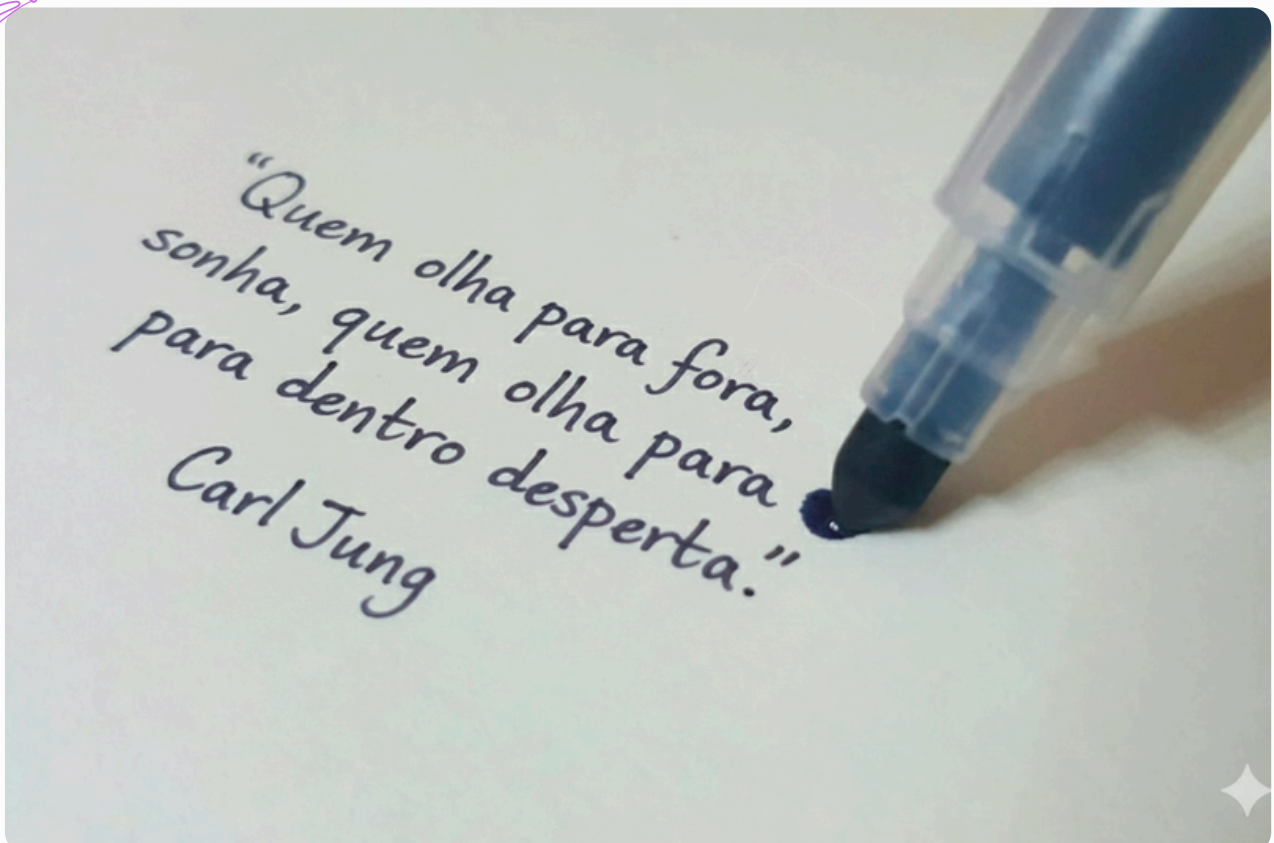 “Quem olha para fora,
sonha, quem olha para
para dentro desperta.”
Carl Jung